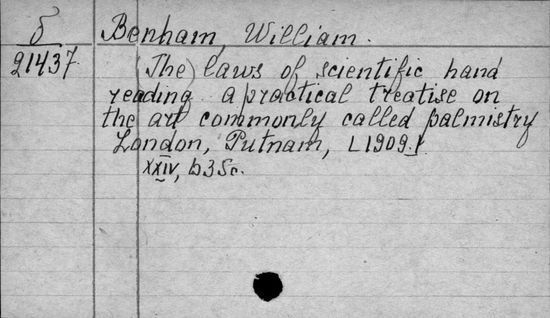 δ Benham, William.
21437 (The) laws of scientific hand
reading a practical treatise on
the art commonly called palmistry
London, Putnam, [1909].
XXIV, 635c.